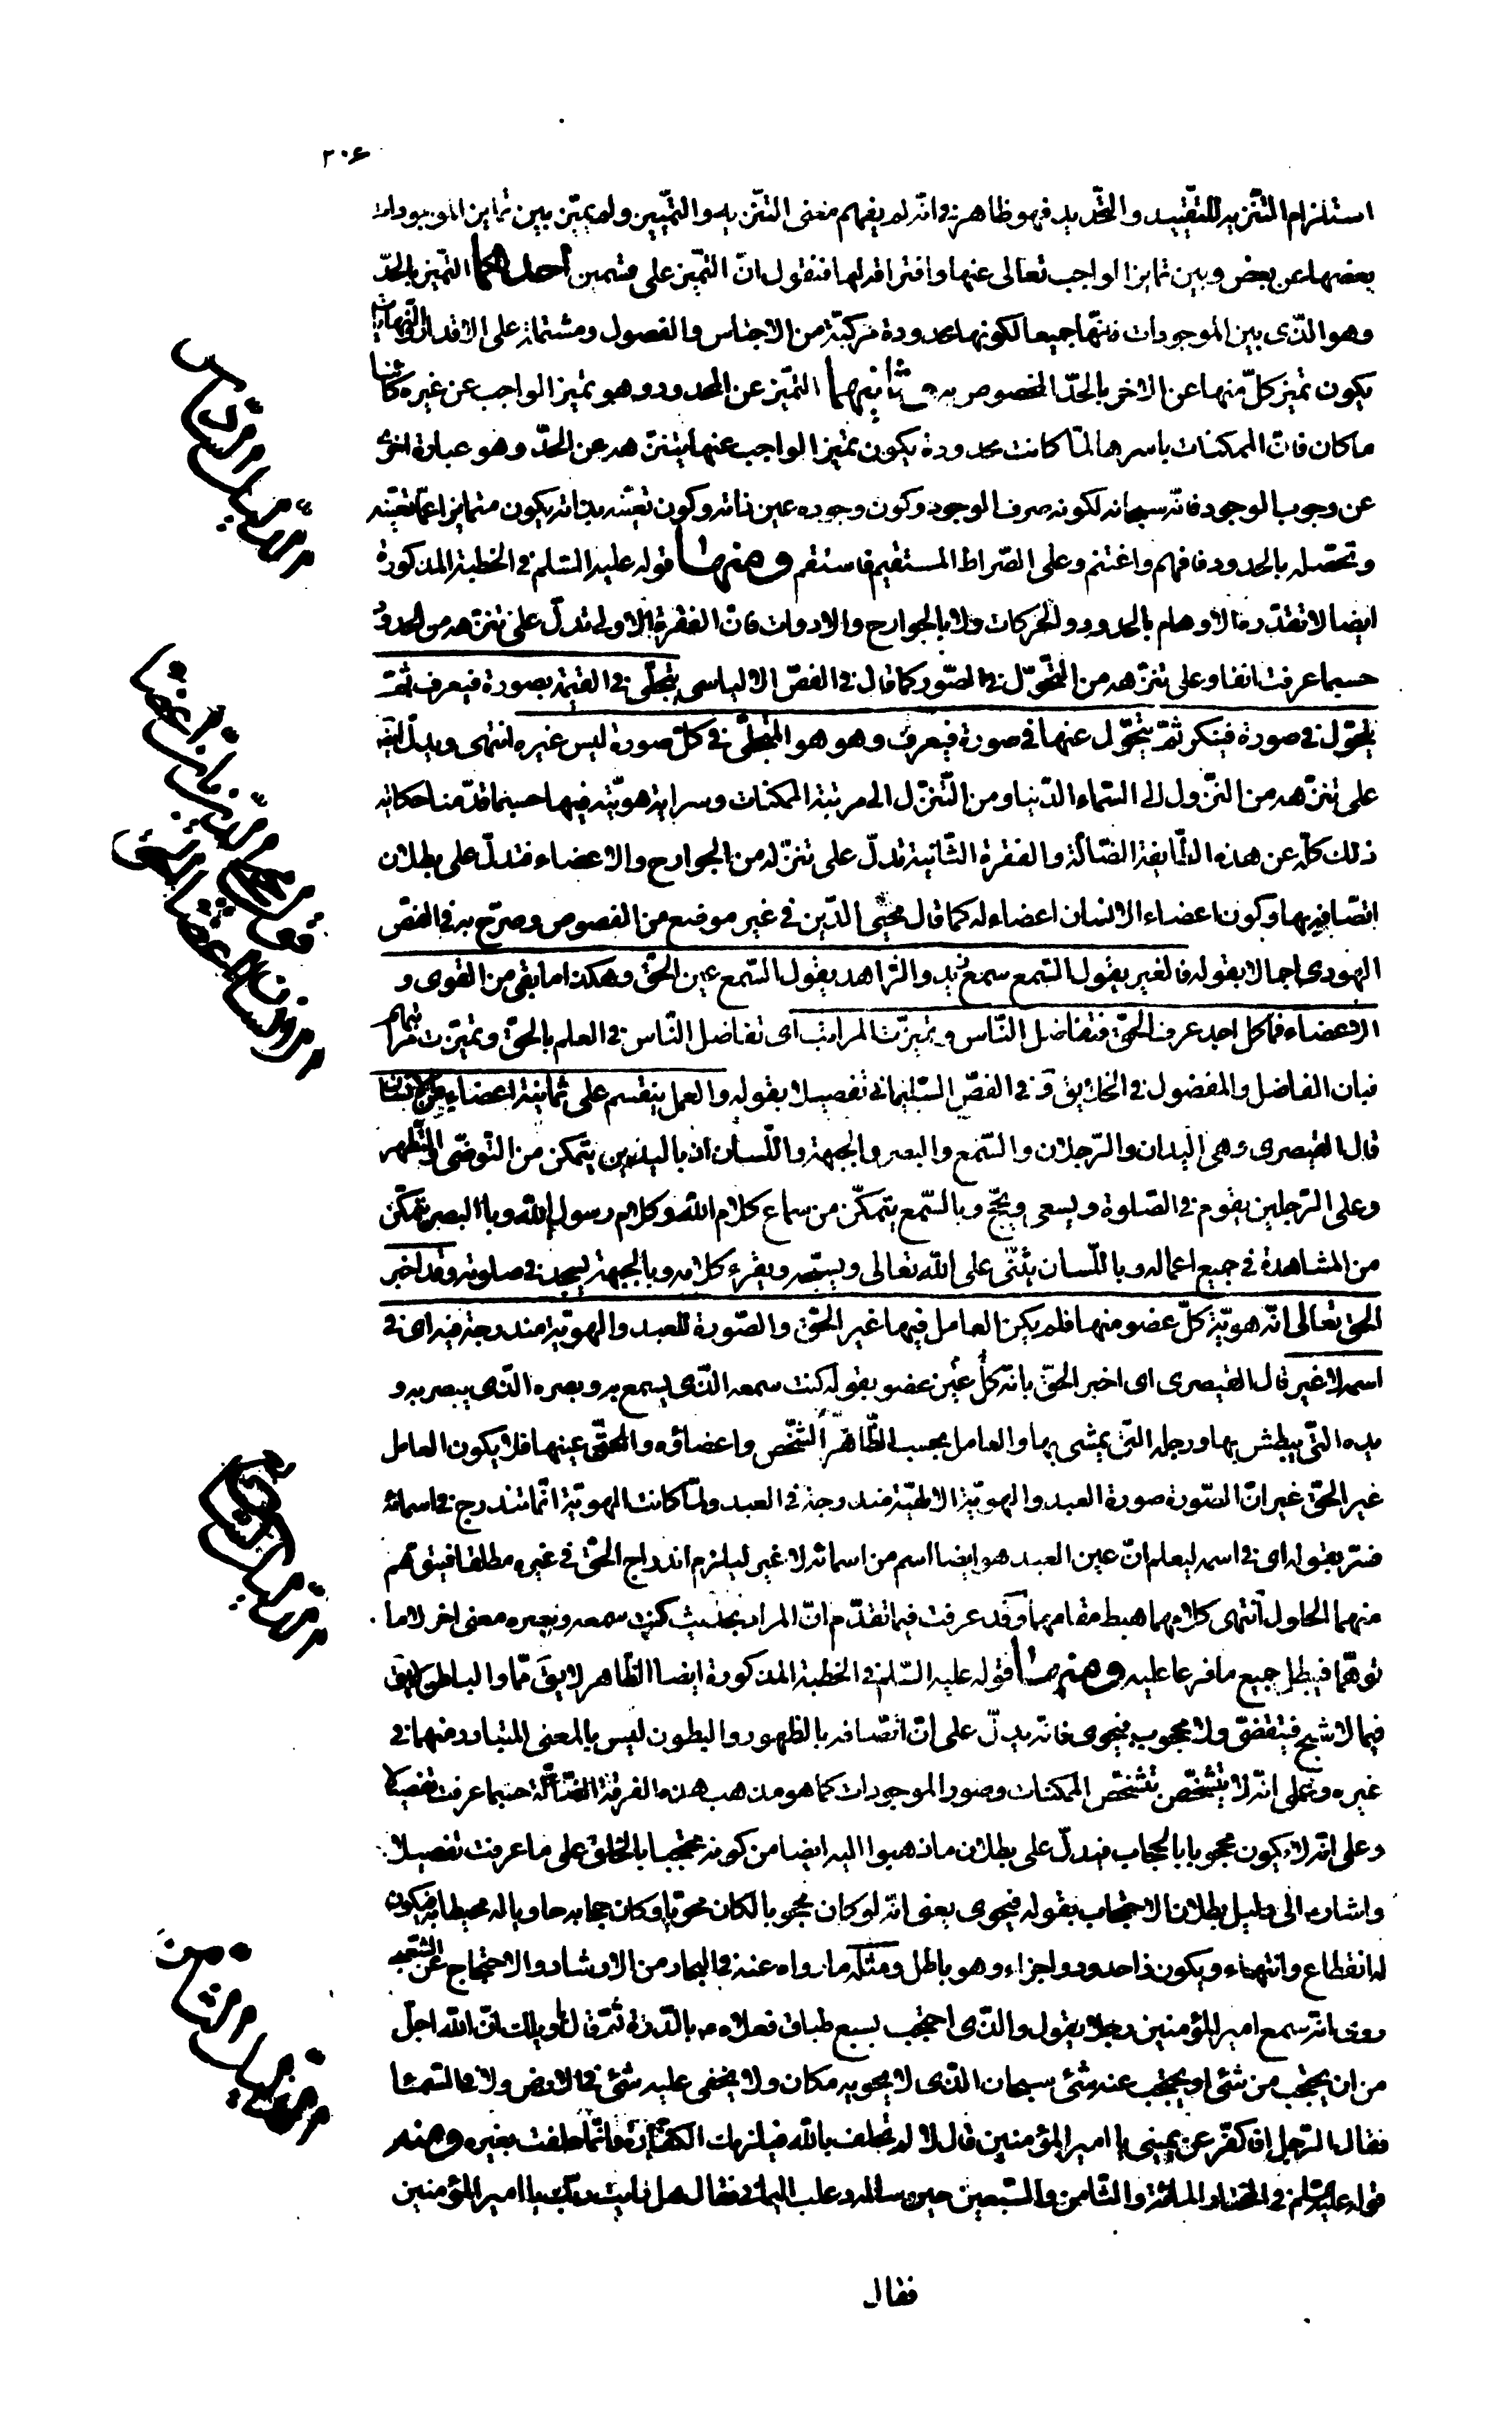 ٢٠۶
استلزام التنزيه للتقييد والتحديد فهو ظاهر في انّه لم يفهم معنى التنزيه والتميّز ولم يميّز بين تمايز الموجودات
بعضها عن بعض وبين تمايز الواجب تعالى عنها وافتراقه لها فنقول انّ التميّز على قسمين احدهما التميّز بالحدّ
وهو الّذى بين الموجودات فانّها جميعا لكونها محدودة مركبّة من الاجناس والفصول ومشتملة على الاقدار والنهايات
يكون تميّز كلّ منها عن الاخر بالحدّ المخصوص به و ثانيهما التميّز عن المحدود وهو تميز الواجب عن غيره كائنا
ما كان فانّ الممكنات باسرها لمّا كانت محدودة يكون تميّز الواجب عنها بتنزّهه عن الحدّ وهو عبارة اخرى
عن وجوب الوجود فانّه سبحانه لكونه صرف الوجود وكون وجوده عين ذاته وكون تعيّنه بذاته يكون متمايزا عمّا تعيّنه
وتحصّله بالحدود فافهم واغتنم وعلى الصّراط المستقيم فاستقم ومنها قوله عليه السّلم في الخطبة المذكورة
ايضا لا تقدّره الاوهام بالحدود والحركات ولا بالجوارح والادوات فانّ الفقرة الاولى تدلّ على تنزّهه من الحدود
حسبما عرفت انفا وعلى تنزّهه من التّحوّل في الصّور كما قال في الفصّ الالياسى يتجلّى في القيمة بصورة فيعرف ثمّ
يتحوّل في صورة فينكر ثمّ يتحوّل عنها في صورة فيعرف وهو هو المتجلّى في كلّ صورة ليس غيره انتهى ويدلّ ايضا
على تنزّهه من النّزول الى السّماء الدّنيا ومن التّنزّل الى مرتبة الممكنات وسراية هويّته فيها حسبما قدّمنا حكاية
ذلك كلّه عن هذه الطّايفة الضّالّة والفقرة الثّانية تدلّ على تنزّهه من الجوارح والاعضاء فتدلّ على بطلان
اتّصافه بها وكون اعضاء الانسان اعضاء له كما قال محيى الدّين في غير موضع من الفصوص وصرّح به في الفصّ
الهودى اجمالا بقوله فالغير يقول السّمع سمع زيد والعارف يقول السّمع عين الحقّ وهكذا ما بقى من القوى و
الاعضاء فما كل احد عرف الحقّ فتفاضل النّاس وتميزّت المراتب اى تفاضل النّاس في العلم بالحقّ وتميّزت مراتبهم
فبان الفاضل والمفضول في الخلايق و في الفصّ السّليمانى تفصيلا بقوله والعمل ينقسم على ثمانية اعضاء من الانسان
قال القيصرى وهى اليدان والرّجلان والسّمع والبصر والجبهة واللّسان اذ باليدين يتمكن من التّوضّى والتّطهر
وعلى الرّجلين يقوم في الصّلوة ويسعى ويحجّ وبالسّمع يتمكّن من سماع كلام الله وكلام رسول الله وبالبصر يتمكّن
من المشاهدة في جميع اعماله وباللّسان يثنّى على الله تعالى ويسبّحه ويقرء كلامه وبالجبهة يسجد في صلوته وقد اخبر
الحق تعالى انّه هويّة كلّ عضو منها فلم يكن العامل فيها غير الحقّ والصّورة للعبد والهويّة مندرجة فيه اى في
اسمه لا غير قال القيصرى اى اخبر الحقّ بانّه كلّ عين عضو بقوله كنت سمعه الّذى يسمع به وبصره الّذى يبصر به و
يده الّتى يبطش بها ورجله الّتى يمشى بها والعامل بحسب الظّاهر الشّخص واعضاؤه والحقّ عينها فلا يكون العامل
غير الحقّ غير انّ الصّورة صورة العبد والهويّة الالهيّة مندرجة في العبد ولمّا كانت الهويّة انّما تندرج في اسمائه
فسّر بقوله اى في اسمه ليعلم انّ عين العبد هو ايضا اسم من اسمائه لا غير ليلزم اندراج الحقّ في غيره مطلقا فيتوهّم
منهما الحلول انتهى كلامهما هبط مقامهما وقد عرفت فيما تقدّم انّ المراد بحديث كنت سمعه وبصره معنى اخر لا ما
توهّما فيبطل جميع ما فرعا عليه ومنها قوله عليه السّلم في الخطبة المذكورة ايضا الظّاهر لا يق ممّا والباطن لا يق
فيما لا شبح فيتقضّى ولا محجوب فيحوى فانّه يدلّ على انّ اتّصافه بالظهور والبطون ليس بالمعنى المتبادر منهما في
غيره وعلى انّه لا يتشخّص بتشخّص الممكنات وصور الموجودات كما هو مذهب هذه الفرقة الضّالّة حسبما عرفت تفصيلا
وعلى انّه لا يكون محجوبا بالحجاب فيدلّ على بطلان ما ذهبوا اليه ايضا من كونه محتجبا بالخلق على ما عرفت تفصيلا
واشار الى دليل بطلان الاحتجاب بقوله فيحوى يعنى انّه لو كان محجوبا لكان محويّا وكان حجابه حاويا له محيطا به فيكون
له انقطاع وانتهاء ويكون ذا حدود واجزاء وهو باطل ومثله ما رواه عنه في البحار من الارشاد والاحتجاج عن الشّعبى
روى انّه سمع امير المؤمنين رجلا يقول والّذى احتجب بسبع طباق فعلاه بالدّرة ثمّ قال له ويلك انّ الله اجلّ
من ان يحتجب من شئ او يحتجب عنه شئ سبحان الّذى لا يحويه مكان ولا يخفى عليه شئ في الارض ولا في السّماء
فقال الرّجل افاكفّر عن يمينى يا امير المؤمنين قال لا لم تحلف بالله فيلزمك الكفّارة فانّما حلفت بغيره ومنه
قوله عليه السّلم في المختار المائة والثّامن والسّبعين حين سأله ذعلب اليمانى فقال هل رايت ربّك يا امير المؤمنين
فقال